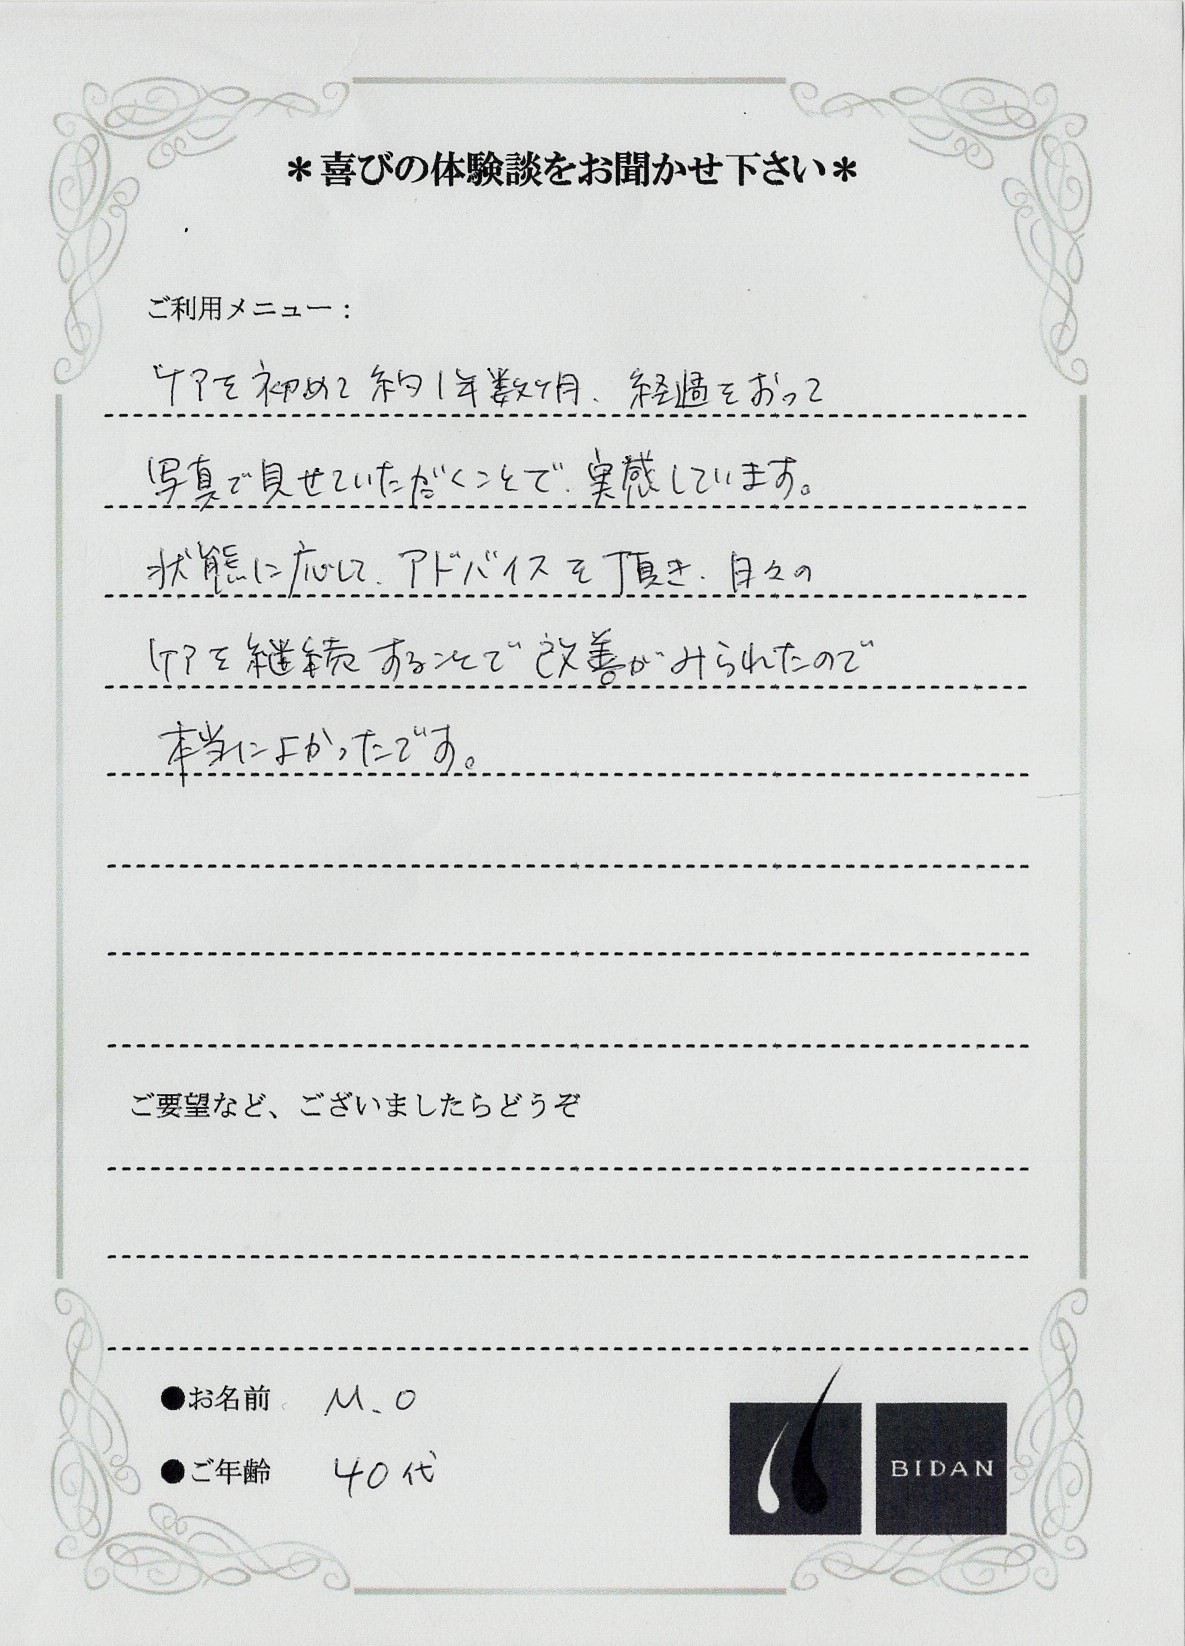 ＊喜びの体験談をお聞かせ下さい＊
ご利用メニュー：
ケアを初めて約1年数ヶ月、経過をおって
写真で見せていただくことで、実感しています。
状態に応じて、アドバイスを頂き、日々の
ケアを継続することで改善がみられたので
本当によかったです。
ご要望など、ございましたらどうぞ
●お名前 M.O
●ご年齢 40代
BIDAN